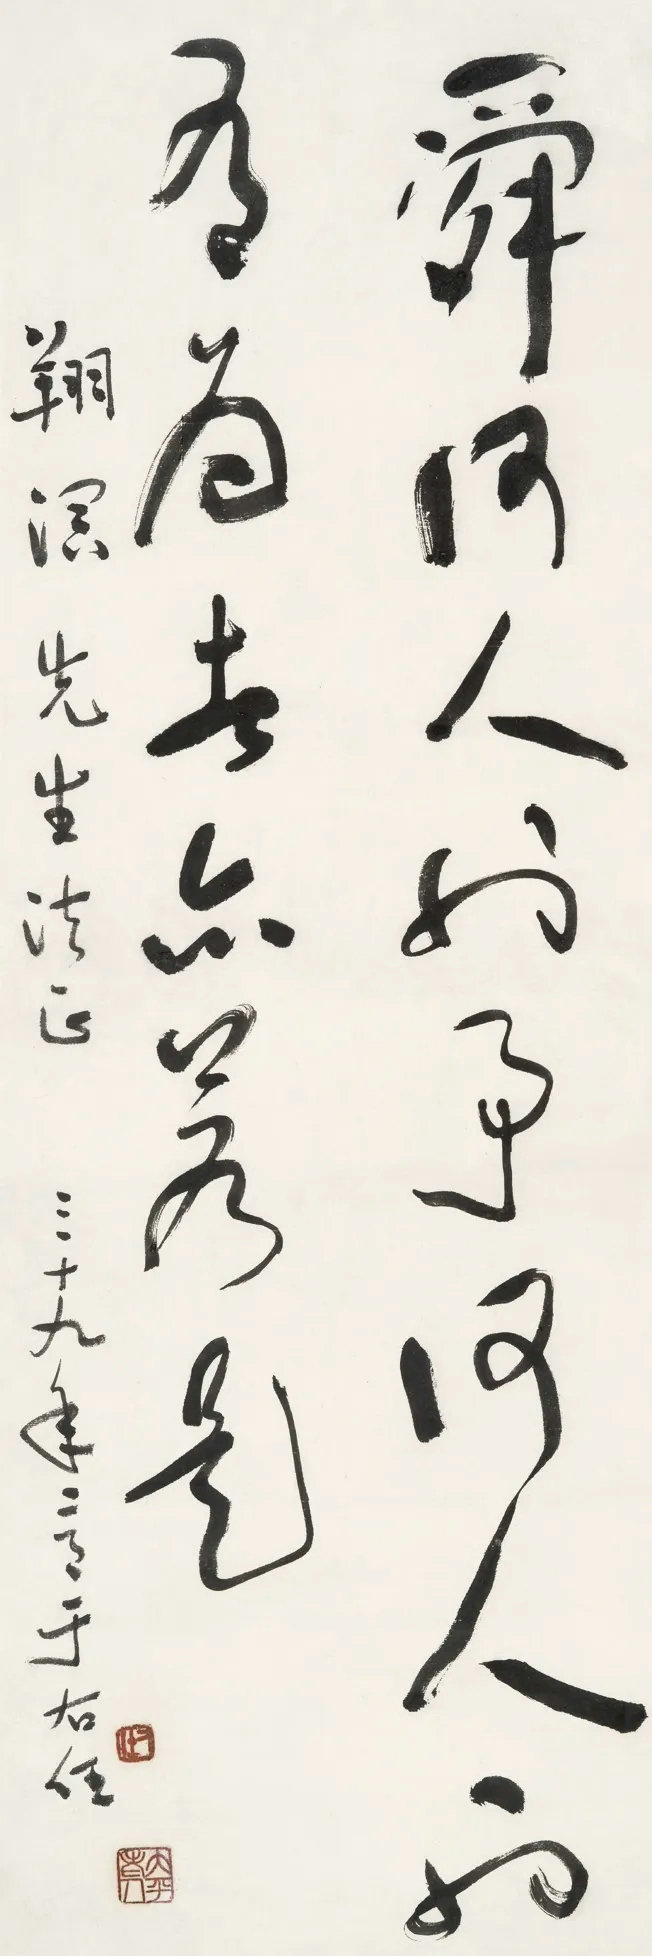 舜何人也予何人也
有为者亦若是
翔溟先生法正
三十九年二月于右任
太平老人